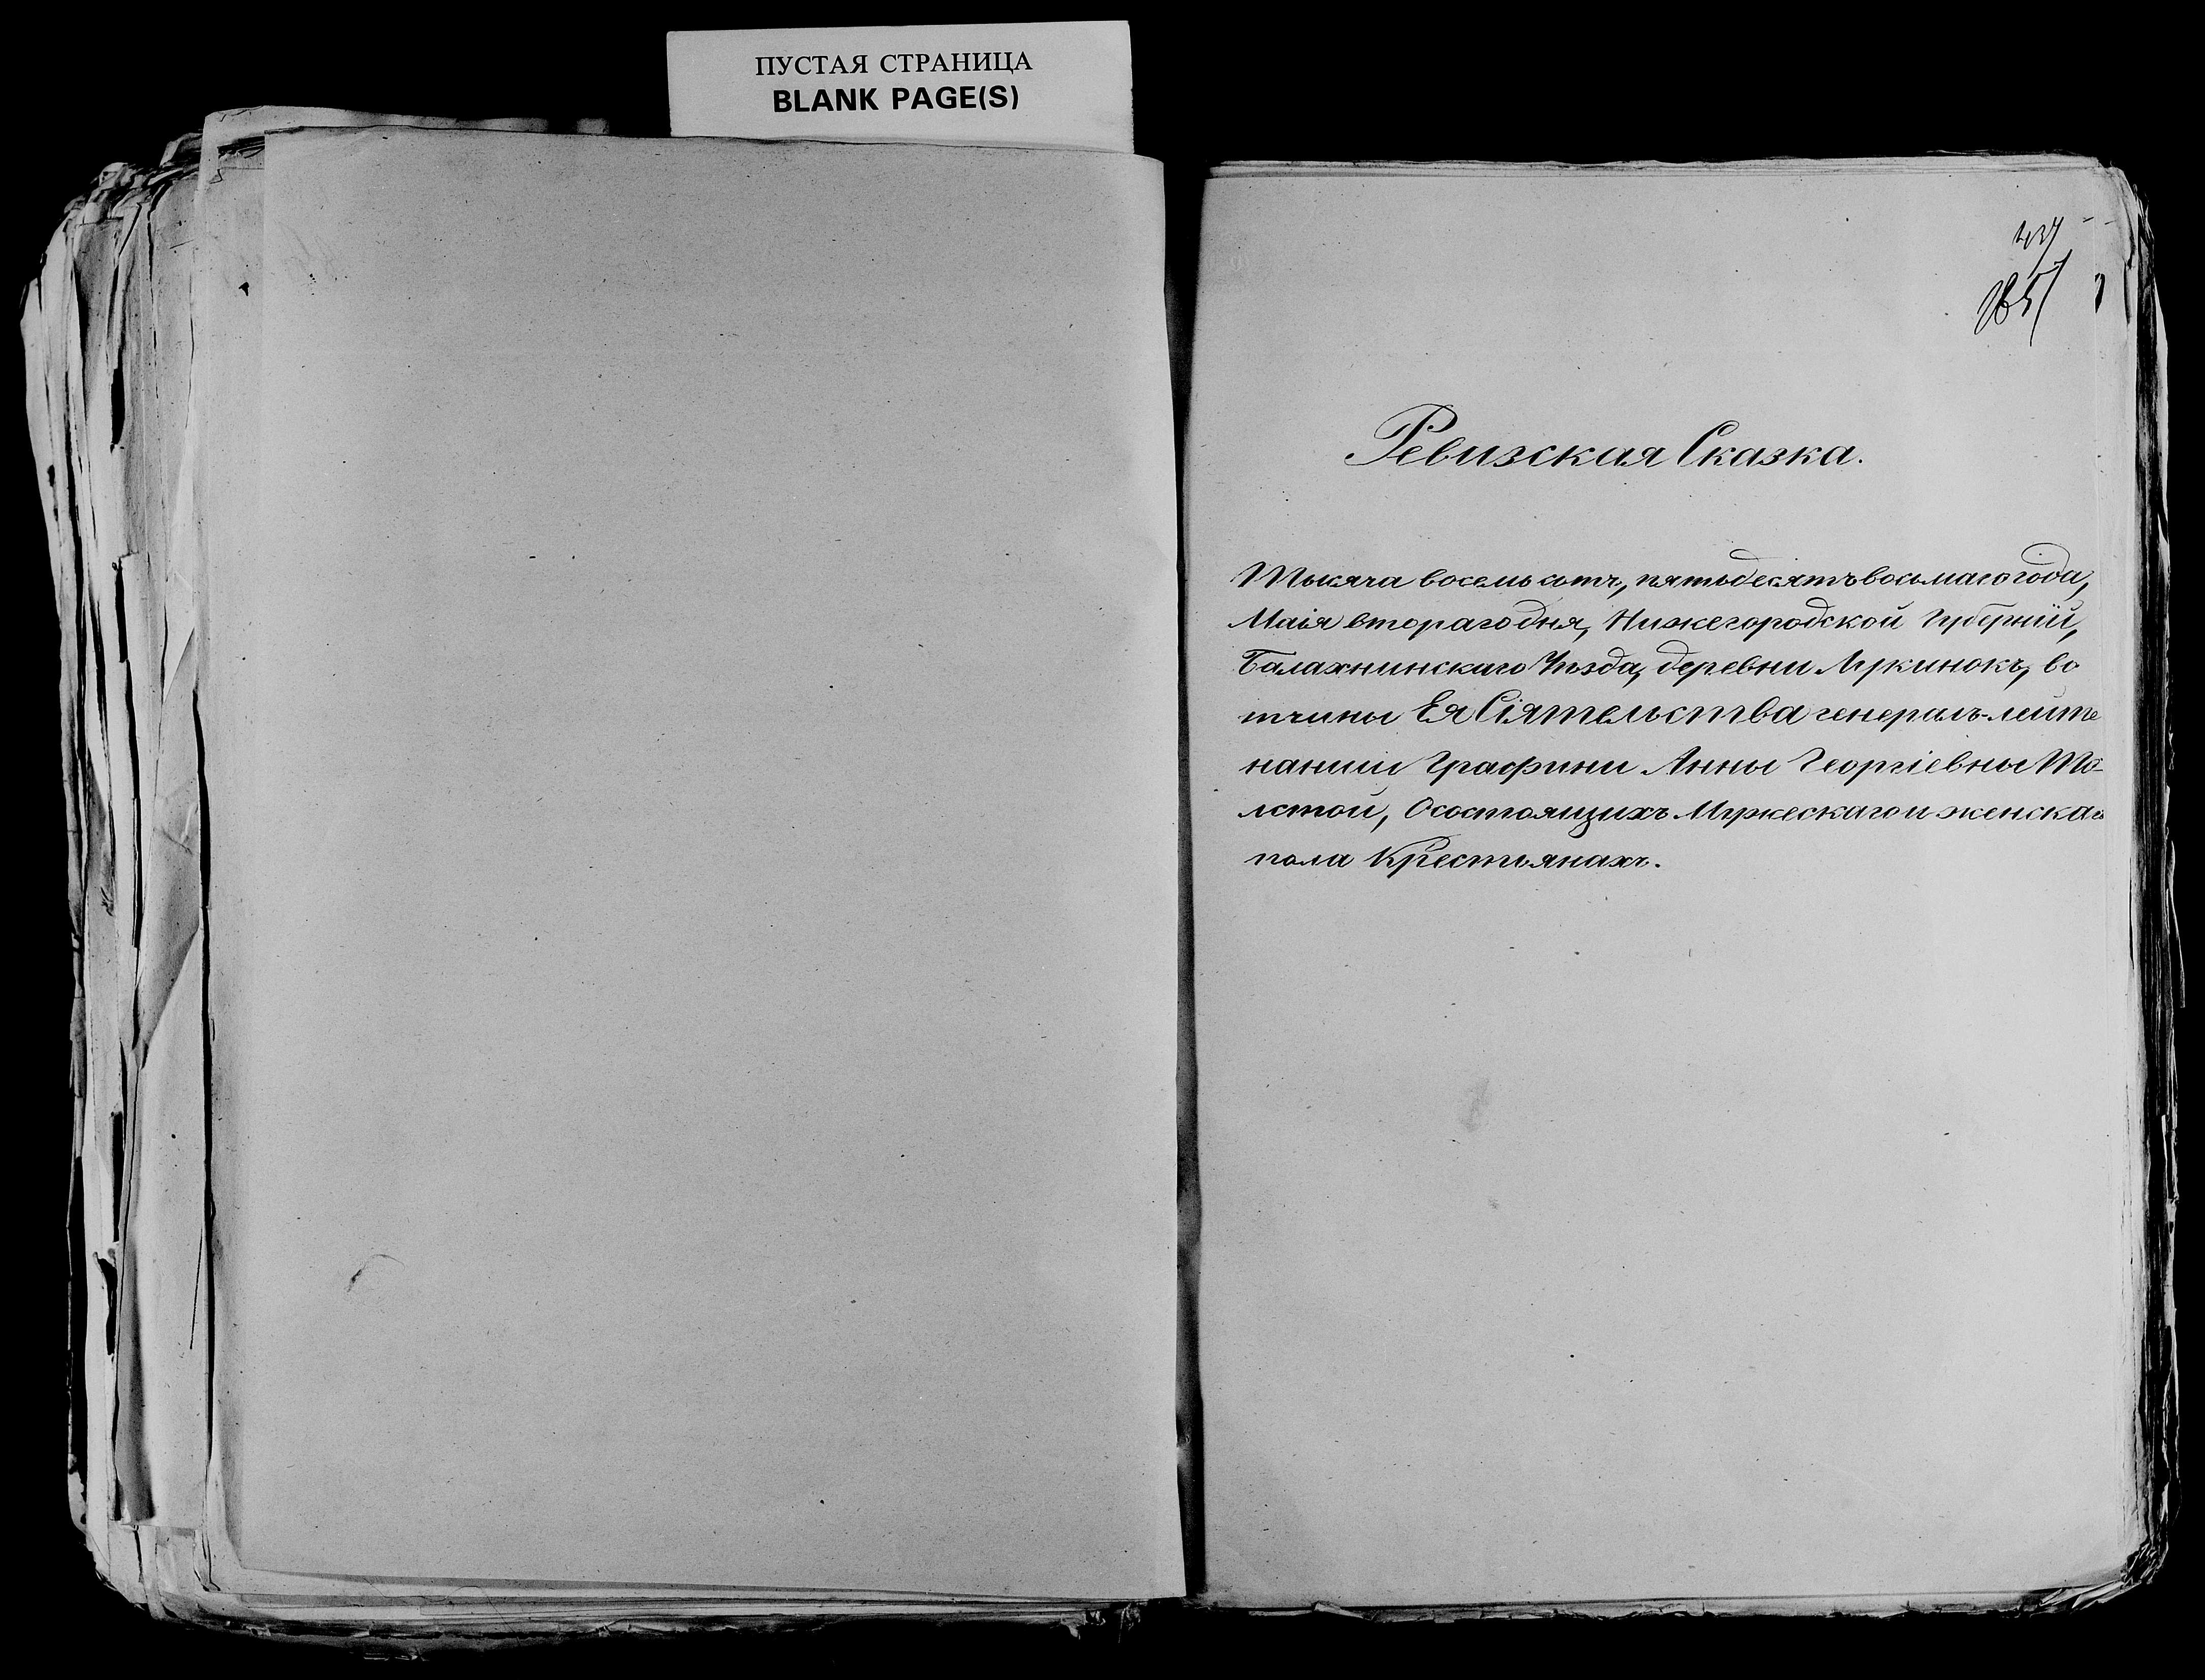 ПУСТАЯ СТРАНИЦА
BLANK PAGE(S)
437
Ревизская Сказка.
Тысяча восемь сотъ, пятьдесятъ восьмаго года,
Маія втораго дня, Нижегородской Губерніи,
Балахнинскаго Уѣзда, деревни Лукинокъ, во
тчины Ея Сіятельства генералъ-лейте
нанши Графини Анны Георгіевны То-
лстой, О состоящихъ Мужескаго и женскаго
пола Крестьянахъ.